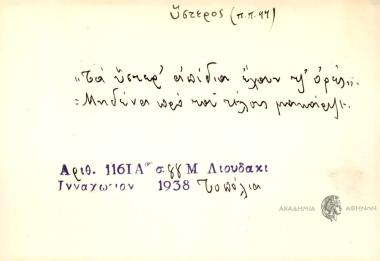 ὕστερος (π.π. 44)
„Τὰ ὕστερ' ἀπίδια ἔχουν τσ' ὀρές".
= Μηδένα πρὸ τοῦ τέλους μακάριζε.
Αριθ. 1161ΙΑ σ. 88 Μ Λιουδακι
Ινναχωριον 1938 Τοπόλια
ΑΚΑΔΗΜΙΑ ΑΘΗΝΩΝ